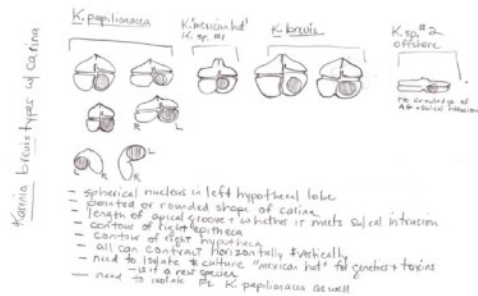 K. papilionacea
K. "mexican hat"
K. sp. #1
K. brevis
K. sp. #2
offshore
no knowledge of
AG + sulcal intrusion
R
L
L
R
R
L
Karenia brevis types w/ carina
- spherical nucleus in left hypothecal lobe
- pointed or rounded shape of carina
- length of apical groove + whether it meets sulcal intrusion
- contour of right epitheca
- contour of right hypotheca
- all can contract horizontally & vertically
- need to isolate & culture "mexican hat" for genetics + toxins
- is it a new species
- need to isolate FL K. papilionacea as well